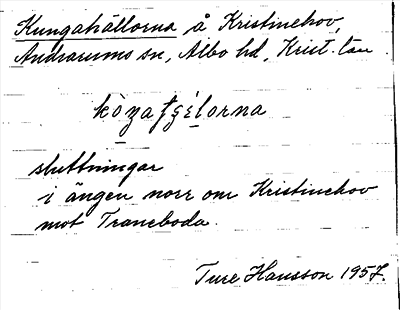 Kungahällorna å Kristinehov,
Andrarums sn, Albo hd, Krist. län.
sluttningar
i ängen norr om Kristinehov
mot Traneboda.
Ture Hansson 1957.